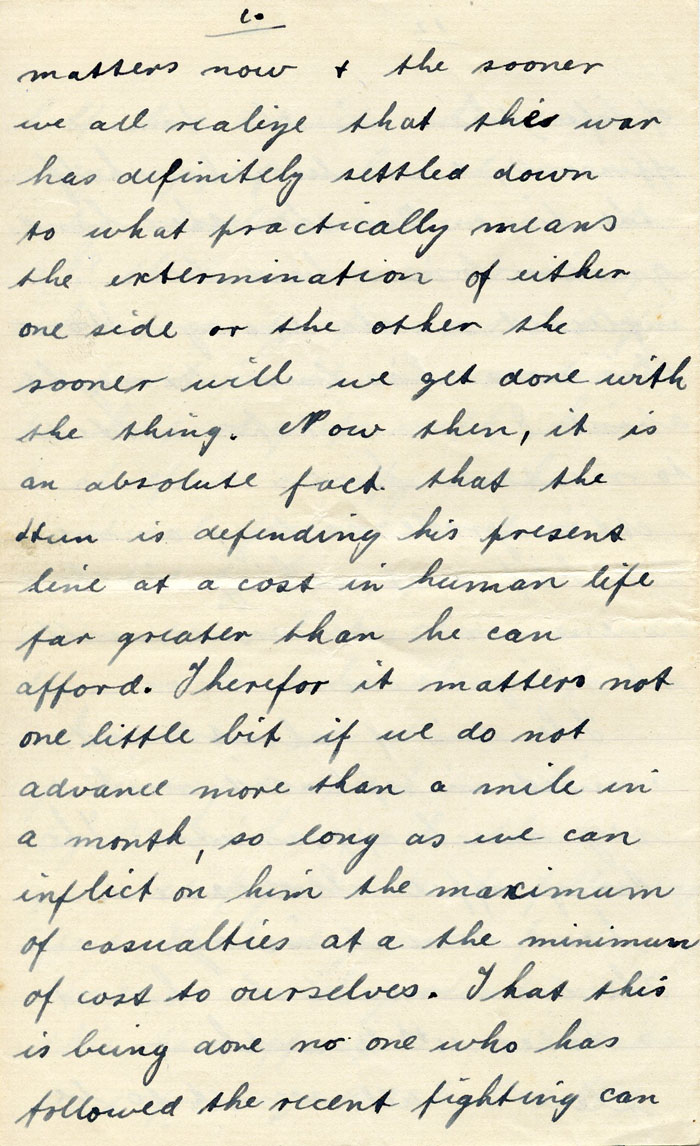 10
matters now & the sooner
we all realize that this war
has definitely settled down
to what practically means
the extermination of either
one side or the other the
sooner will we get done with
the thing. Now then, it is
an absolute fact. that the
Hun is defending his present
line at a cost in human life
far greater than he can
afford. Therefor it matters not
one little bit if we do not
advance more than a mile in
a month, so long as we can
inflict on him the maximum
of casualties at a the minimum
of cost to ourselves. That this
is being done no one who has
followed the recent fighting can